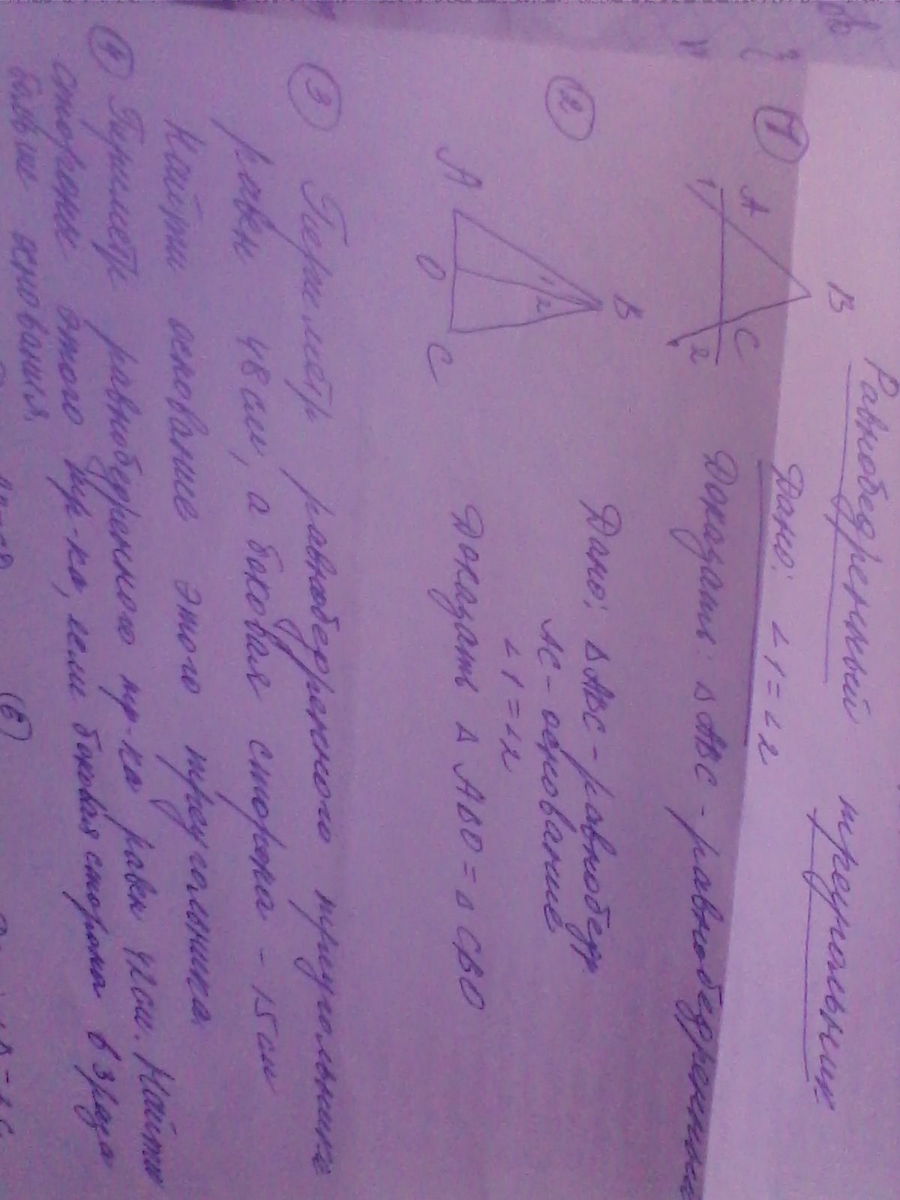 Равнобедренный треугольник
① Дано: ∠1=∠2
B
A
C
1
2
Доказать: ΔABC - равнобедренный
② Дано: ΔABC - равнобедр.
AC - основание
∠1=∠2
Доказать ΔABO=ΔCBO
B
1
2
A
O
C
③ Периметр равнобедренного треугольника
равен 48см, а боковая сторона - 15см
Найти основание этого треугольника.
④ Периметр равнобедренного тр-ка равен 42см. Найти
стороны этого тр-ка, если боковая сторона в 3 раза
больше основания